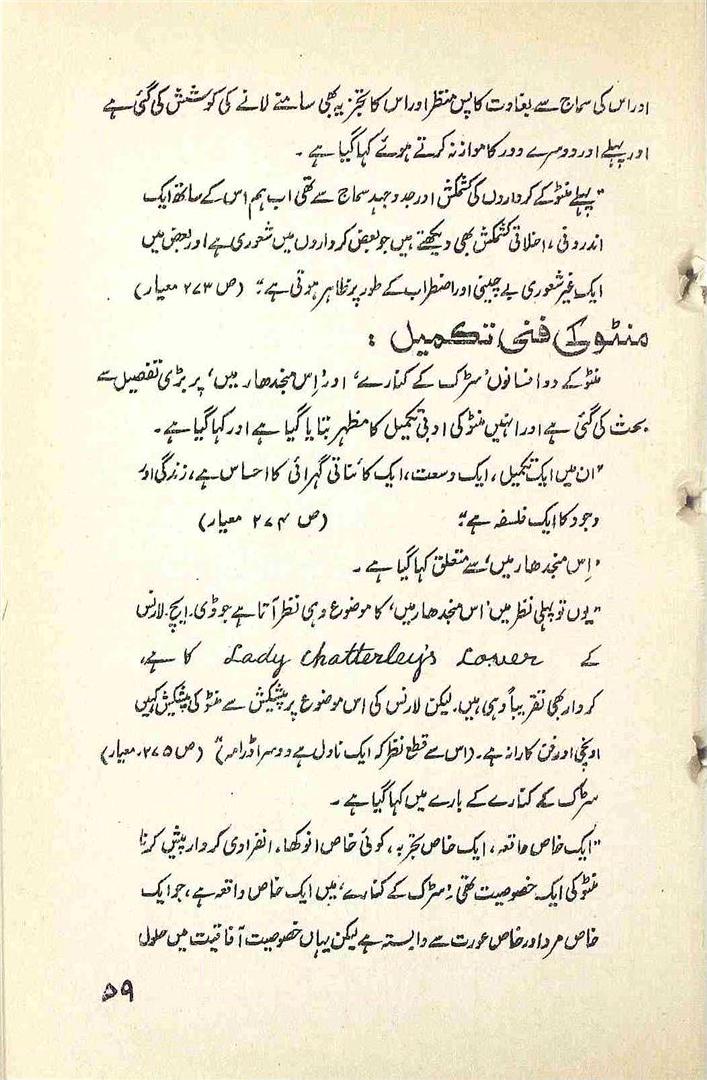 اور اس کی سماج سے بغاوت کا پس منظر اور اس کا تجزیہ بھی سامنے لانے کی کوشش کی گئی ہے
اور پہلے اور دوسرے دور کا موازنہ کرتے ہوئے کہا گیا ہے ۔
"پہلے منٹو کے کرداروں کی کشمکش اور جدوجہد سماج سے تھی اب ہم اس کے ساتھ ایک
اندرونی، اخلاقی کشمکش بھی دیکھتے ہیں جو بعض کرداروں میں شعوری ہے اور بعض میں
ایک غیر شعوری بے چینی اور اضطراب کے طور پر ظاہر ہوتی ہے" (ص ۲۷۳ معیار)
منٹو کی فنی تکمیل :
منٹو کے دو افسانوں 'سڑک کے کنارے' اور 'اِس منجدھار میں' پر بڑی تفصیل سے
بحث کی گئی ہے اور انہیں منٹو کی ادبی تکمیل کا مظہر بتایا گیا ہے اور کہا گیا ہے ۔
"ان میں ایک تکمیل، ایک وسعت، ایک کائناتی گہرائی کا احساس ہے، زندگی اور
وجود کا ایک فلسفہ ہے" (ص ۲۷۴ معیار)
'اِس منجدھار میں' سے متعلق کہا گیا ہے ۔
"یوں تو پہلی نظر میں 'اس منجدھار میں' کا موضوع وہی نظر آتا ہے جو ڈی۔ ایچ۔ لارنس
کے Lady Chatterley's Lover کا ہے،
کردار بھی تقریباً وہی ہیں۔ لیکن لارنس کی اس موضوع پر پیشکش سے منٹو کی پیشکش کہیں
اونچی اور فن کارانہ ہے۔ (اس سے قطع نظر کہ ایک ناول ہے دوسرا ڈرامہ)" (ص ۲۷۵۔ معیار)
سڑک کے کنارے کے بارے میں کہا گیا ہے ۔
"ایک خاص واقعہ، ایک خاص تجربہ، کوئی خاص انوکھا، انفرادی کردار پیش کرنا
منٹو کی ایک خصوصیت تھی 'سڑک کے کنارے' میں ایک خاص واقعہ ہے، جو ایک
خاص مرد اور خاص عورت سے وابستہ ہے لیکن یہاں خصوصیت آفاقیت میں حلول
۵۹